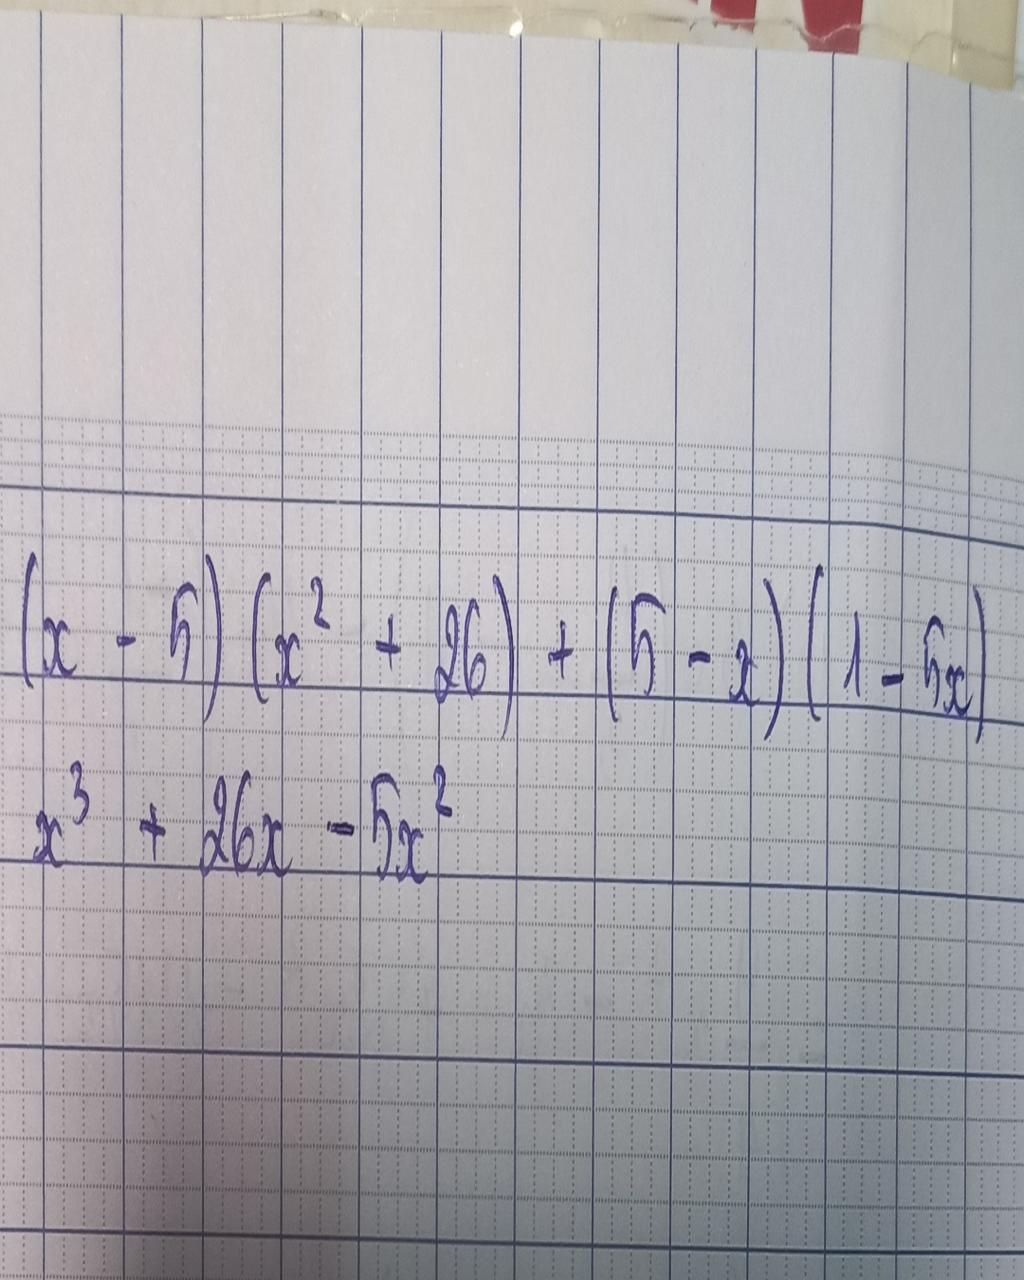 (x - 5) (x² + 26) + (5 - x) (1 - 5x)
x³ + 26x - 5x²